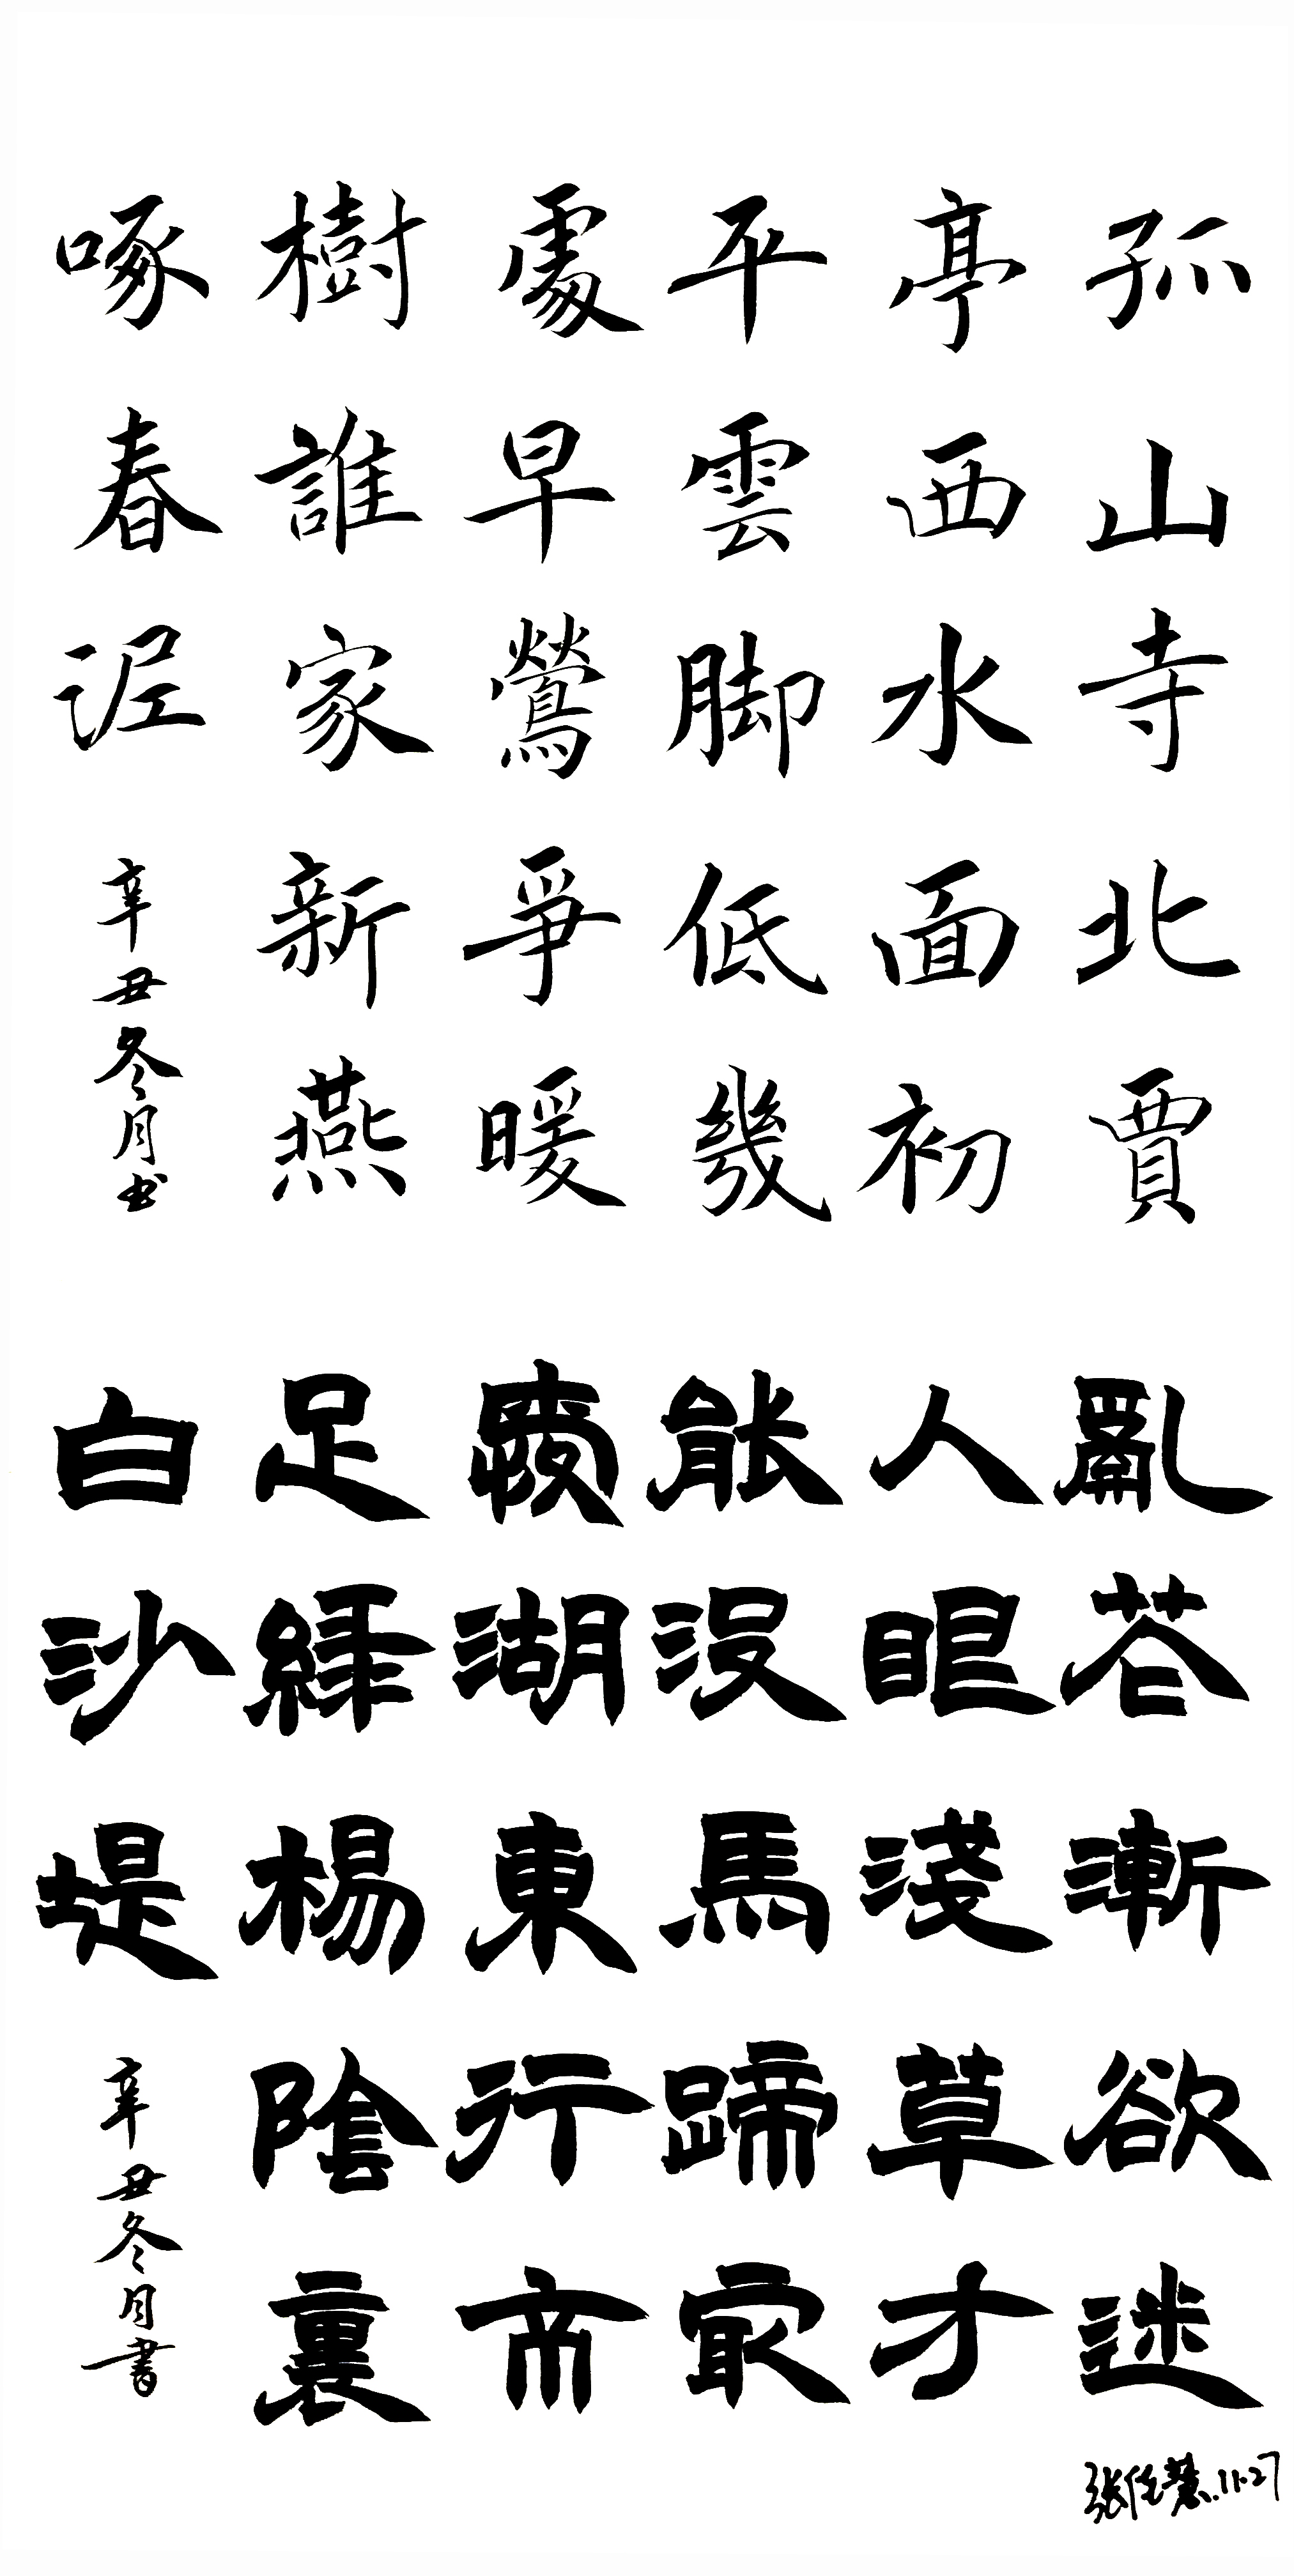 孤山寺北賈
亭西水面初
平雲脚低幾
處早鶯爭暖
樹誰家新燕
啄春泥
辛丑冬月书
亂花漸欲迷
人眼淺草才
能沒馬蹄冣
愛湖東行不
足綠楊陰裏
白沙堤
辛丑冬月書
张慧.11.27